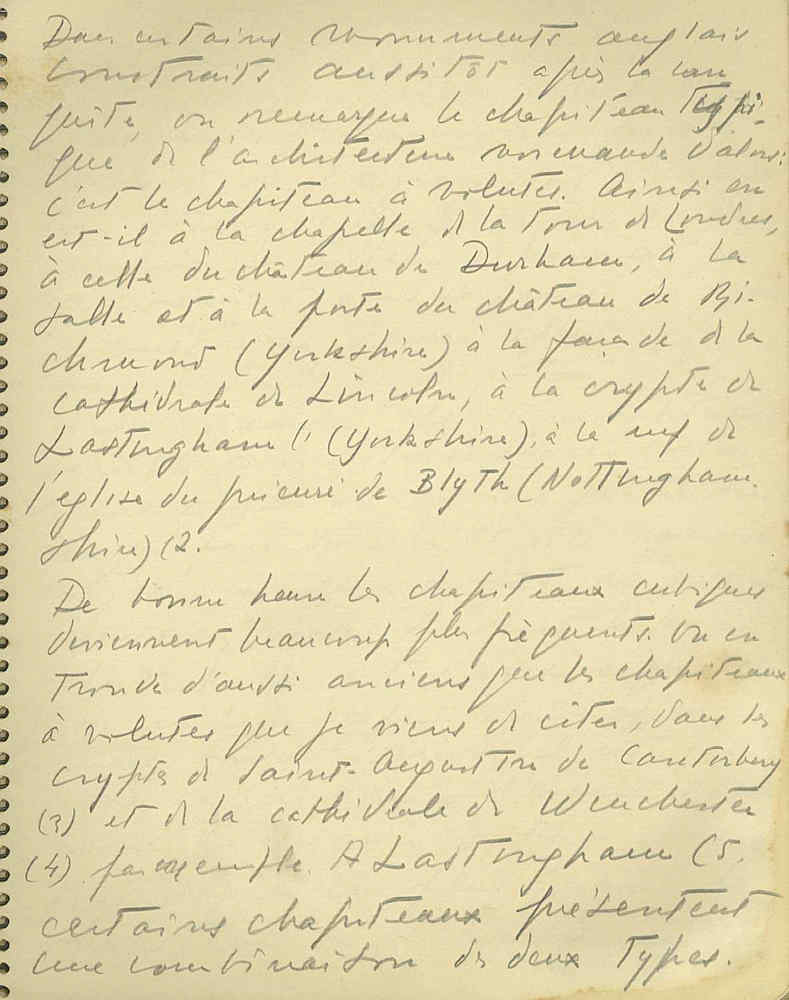 Dans certains monuments anglais
construits aussitôt après la con
quête, on remarque le chapiteau typi-
que de l'architecture normande d'alors:
c'est le chapiteau à volutes. Ainsi en
est-il à la chapelle de la Tour de Londres,
à celle du château de Durham, à la
salle et à la porte du château de Ri-
chmond (Yorkshire) à la façade de la
cathédrale de Lincoln, à la crypte de
Lastingham (1 (Yorkshire), à la nef de
l'église du prieuré de Blyth (Nottingham.
shire) (2.
De bonne heure les chapiteaux cubiques
deviennent beaucoup plus fréquents. On en
trouve d'aussi anciens que les chapiteaux
à volutes que je viens de citer, dans les
cryptes de Saint-Augustin de Canterbury
(3) et de la cathédrale de Winchester
(4) par exemple. A Lastingham (5.
certains chapiteaux présentent
une combinaison des deux types.